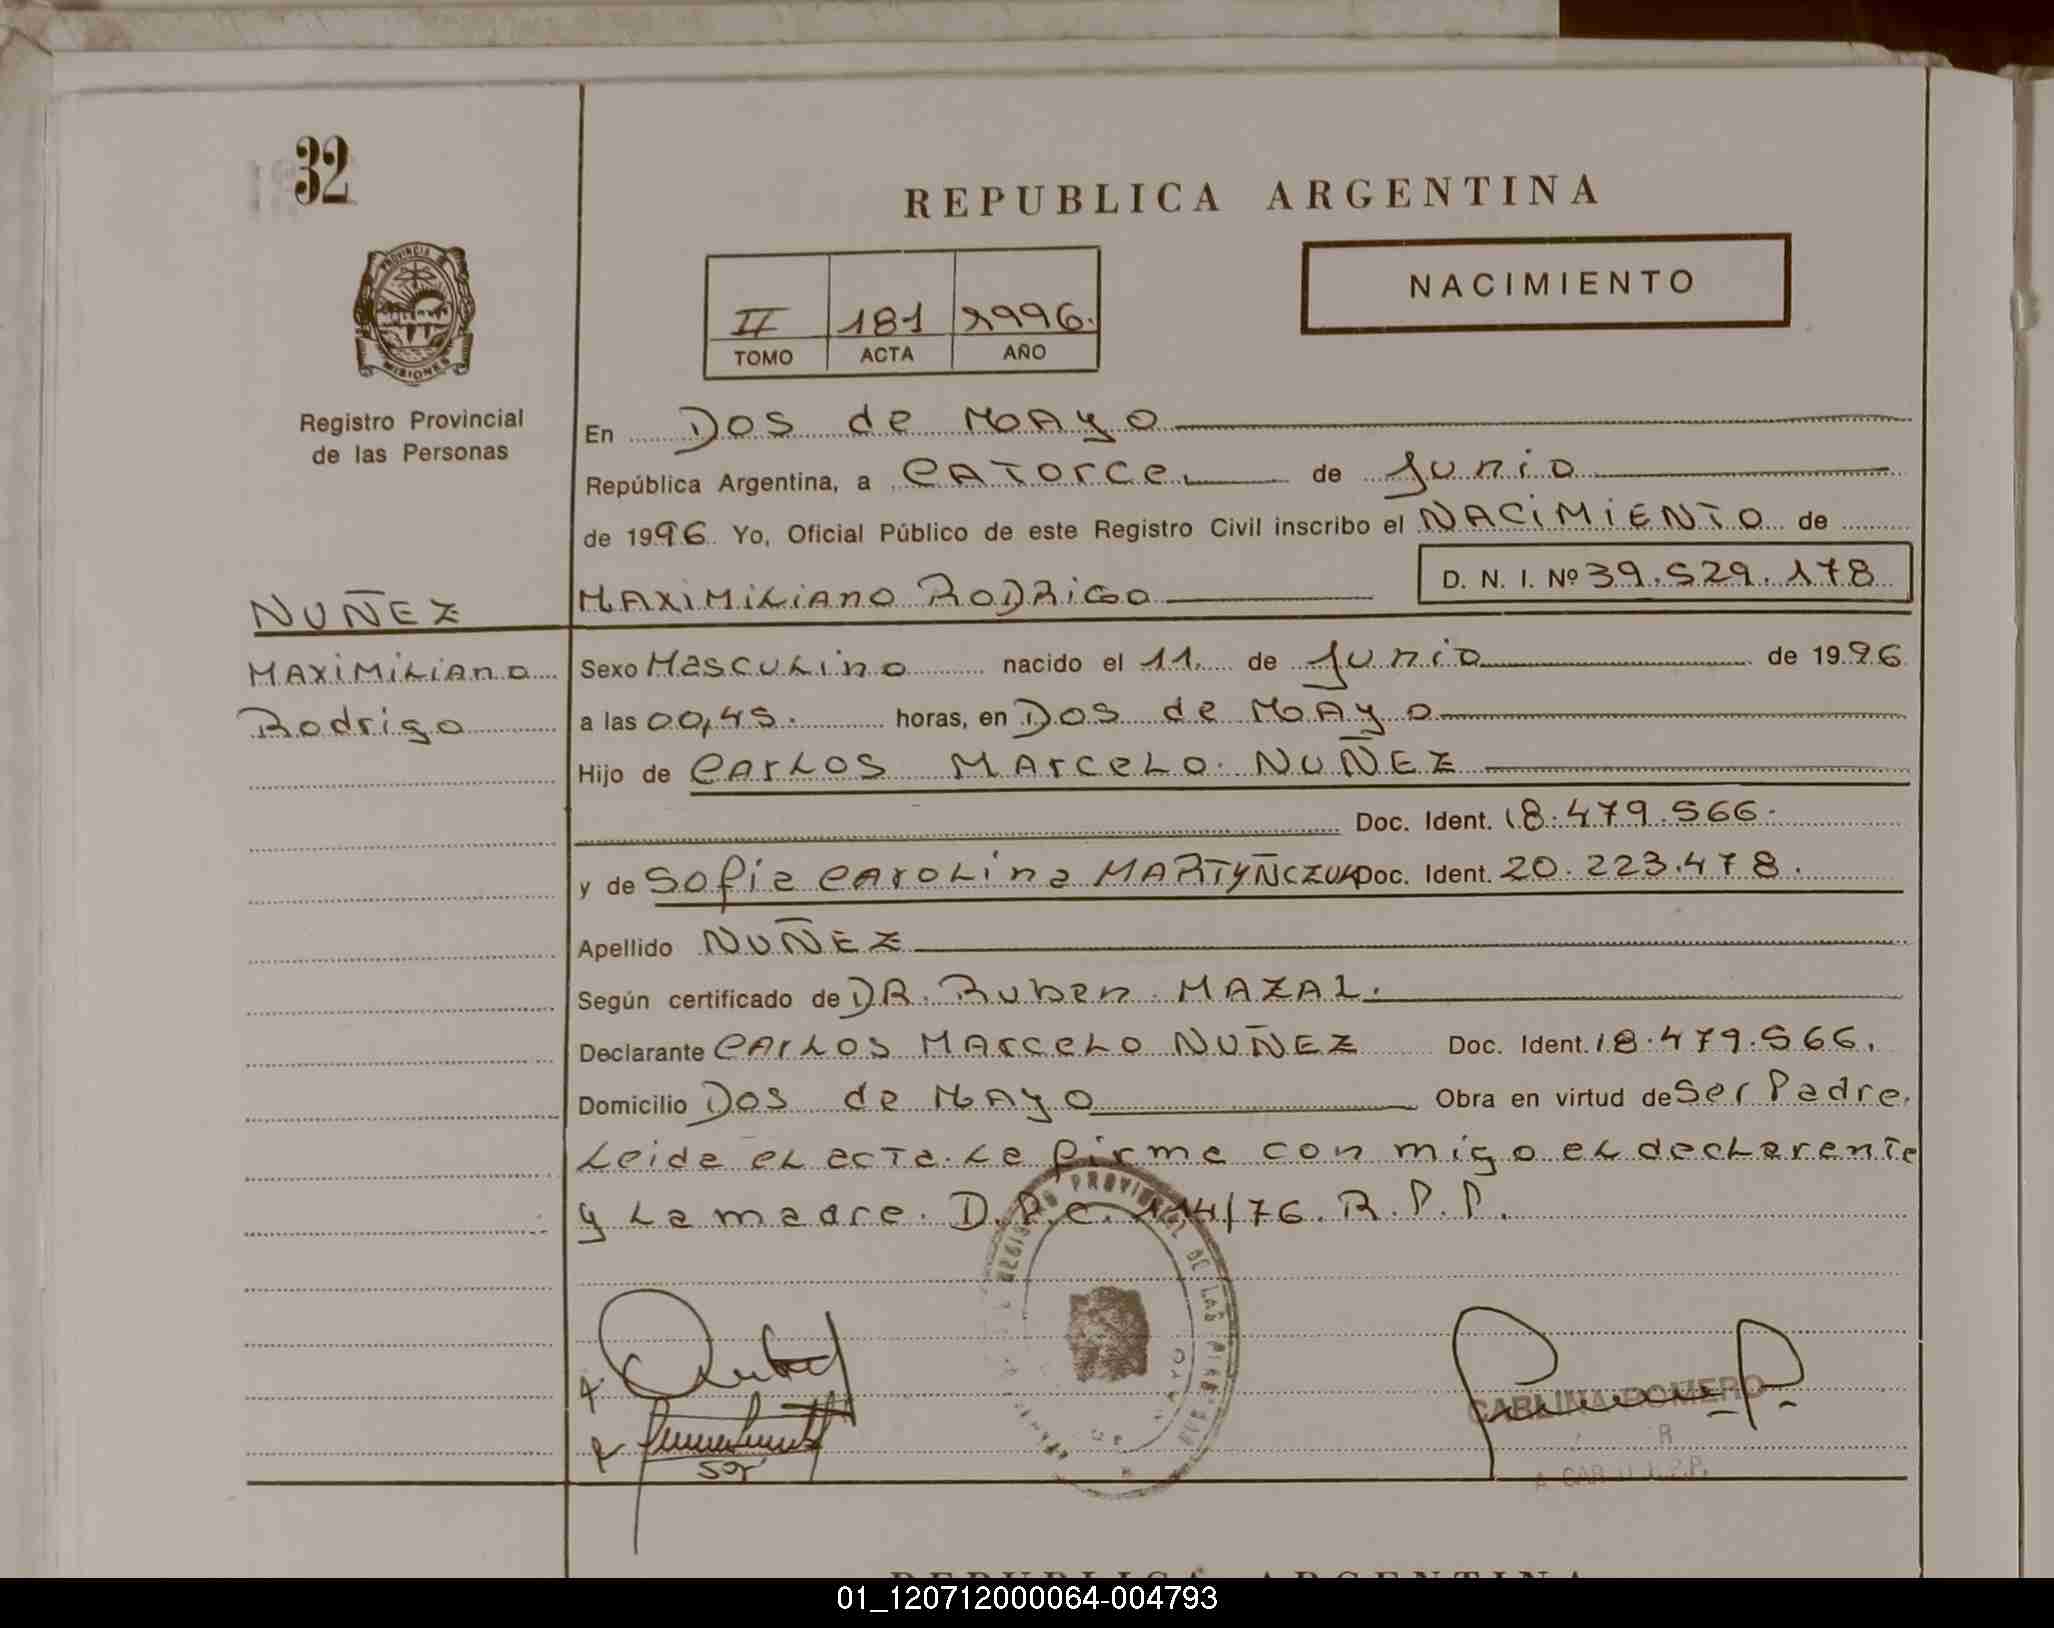 32
REPUBLICA ARGENTINA
NACIMIENTO
II 181 1996.
TOMO ACTA AÑO
PROVINCIA D
MISIONES
Registro Provincial
de las Personas
En Dos de MAyo
República Argentina, a CATorce de Junio
de 1996. Yo, Oficial Público de este Registro Civil inscribo el NACiMiENTO de
D. N. I. Nº 39.529.178
NUÑEZ MAXiMiLiAnO RODRiGo
MAXiMiLiAnO Sexo MascuLino nacido el 11. de Junio de 1996
Rodrigo a las 00,45. horas, en Dos de MAyo
Hijo de CArLos MArceLo. NUÑEZ
Doc. Ident. 18.479.566.
y de Sofia CAroLina MARTYÑCZUK Doc. Ident. 20.223.478.
Apellido NUÑEZ
Según certificado de DR. Ruben MAZAL.
Declarante CArLos MArceLo NUÑEZ Doc. Ident. 18.479.566.
Domicilio Dos de MAyo Obra en virtud de Ser Padre.
Leida eL acta. La firma con migo eL decLarante
y La madre. D.P.C. 114/76. R.P.P.
REGISTRO PROVINCIAL DE LAS PERSONAS
CARLINA ROMERO
REPUBLICA ARGENTINA
01_120712000064-004793